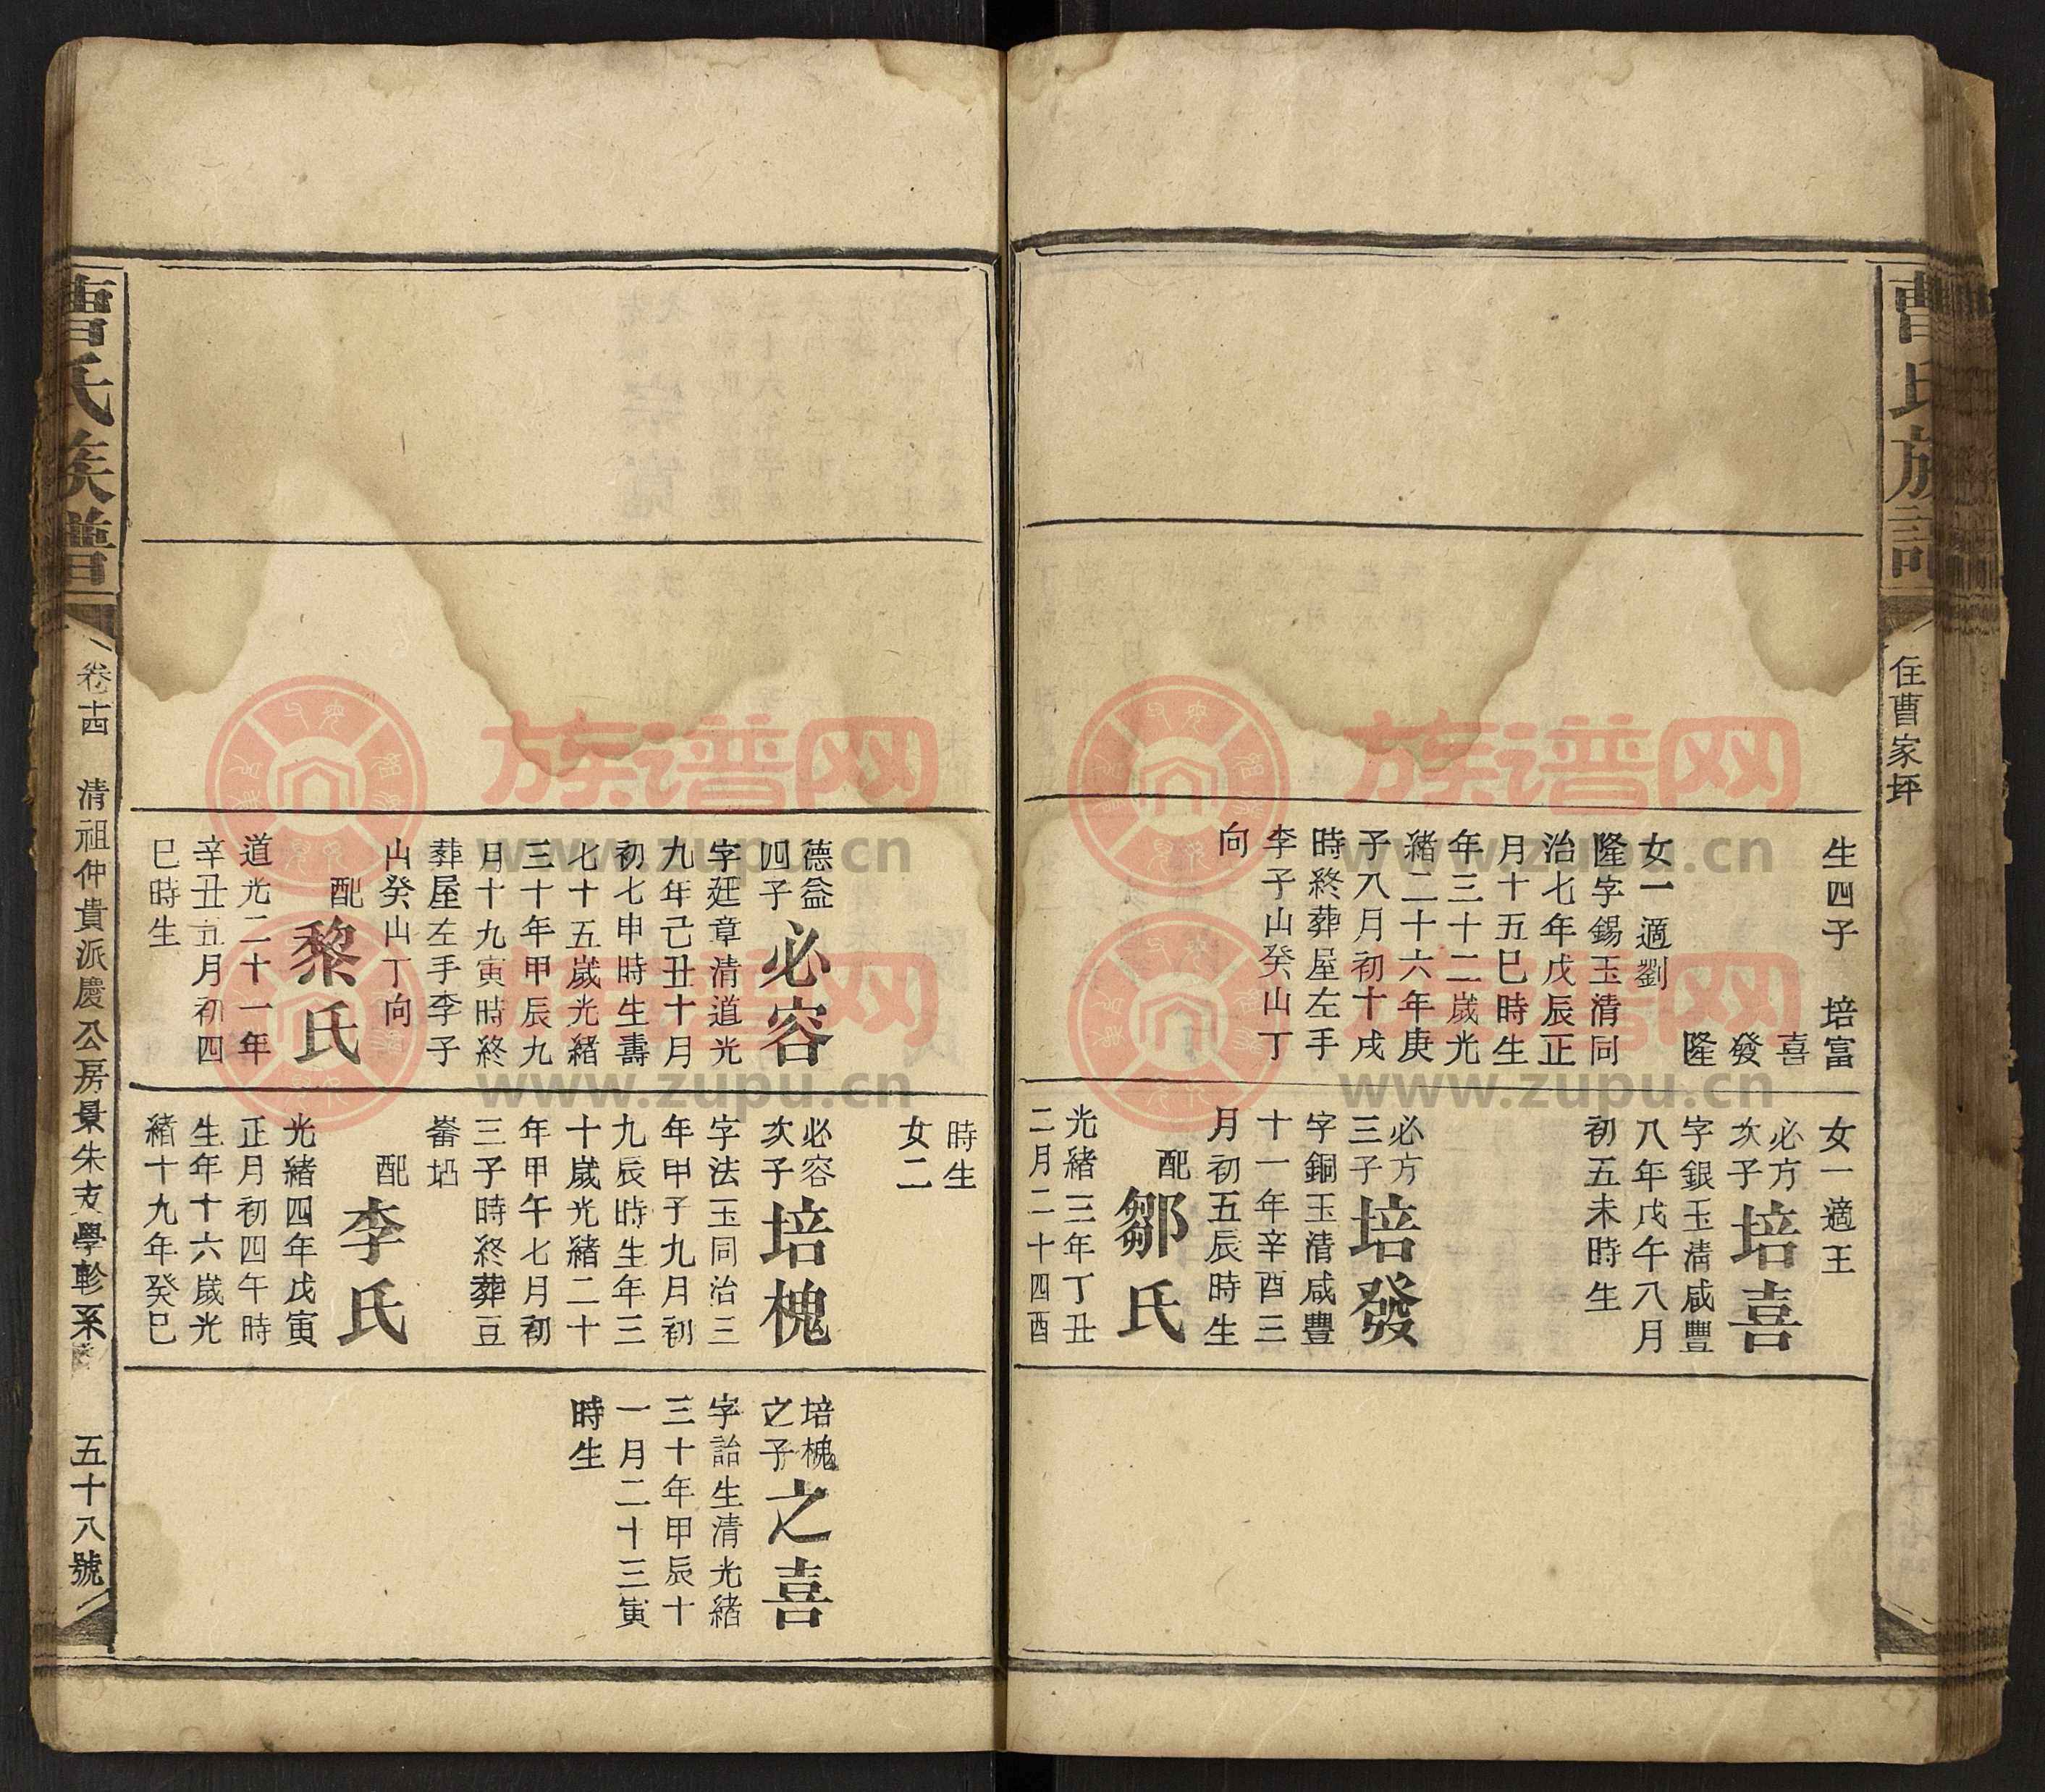 曹氏族譜
住曹家坪
生四子　培富
喜
發
隆
女一適劉
隆字錫玉清同
治七年戊辰正
月十五巳時生
年三十二歲光
緒二十六年庚
子八月初十戌
時終葬屋左手
李子山癸山丁
向
女一適王
必方
次子
培喜
字銀玉清咸豐
八年戊午八月
初五未時生
必方
三子
培發
字銅玉清咸豐
十一年辛酉三
月初五辰時生
配
鄒氏
光緒三年丁丑
二月二十四酉
德益
四子
必容
字廷章清道光
九年己丑十月
初七申時生壽
七十五歲光緒
三十年甲辰九
月十九寅時終
葬屋左手李子
山癸山丁向
配
黎氏
道光二十一年
辛丑五月初四
巳時生
時生
女二
必容
次子
培槐
字法玉同治三
年甲子九月初
九辰時生年三
十歲光緒二十
年甲午七月初
三子時終葬豆
配
李氏
光緒四年戊寅
正月初四午時
生年十六歲光
緒十九年癸巳
培槐
之子
之喜
字詒生清光緒
三十年甲辰十
一月二十三寅
時生
曹氏族譜
卷十四　清祖仲貴派慶公房景朱支學軫系
五十八號
族谱网
www.zupu.cn
族谱网
www.zupu.cn
族谱网
www.zupu.cn
族谱网
www.zupu.cn